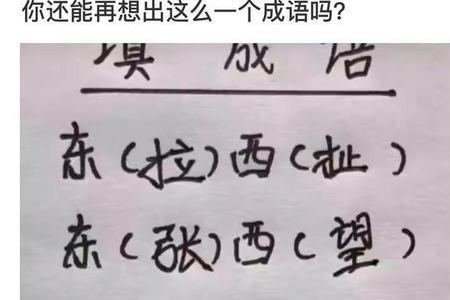 你还能再想出这么一个成语吗?
填成语
东(拉)西(扯)
东(张)西(望)